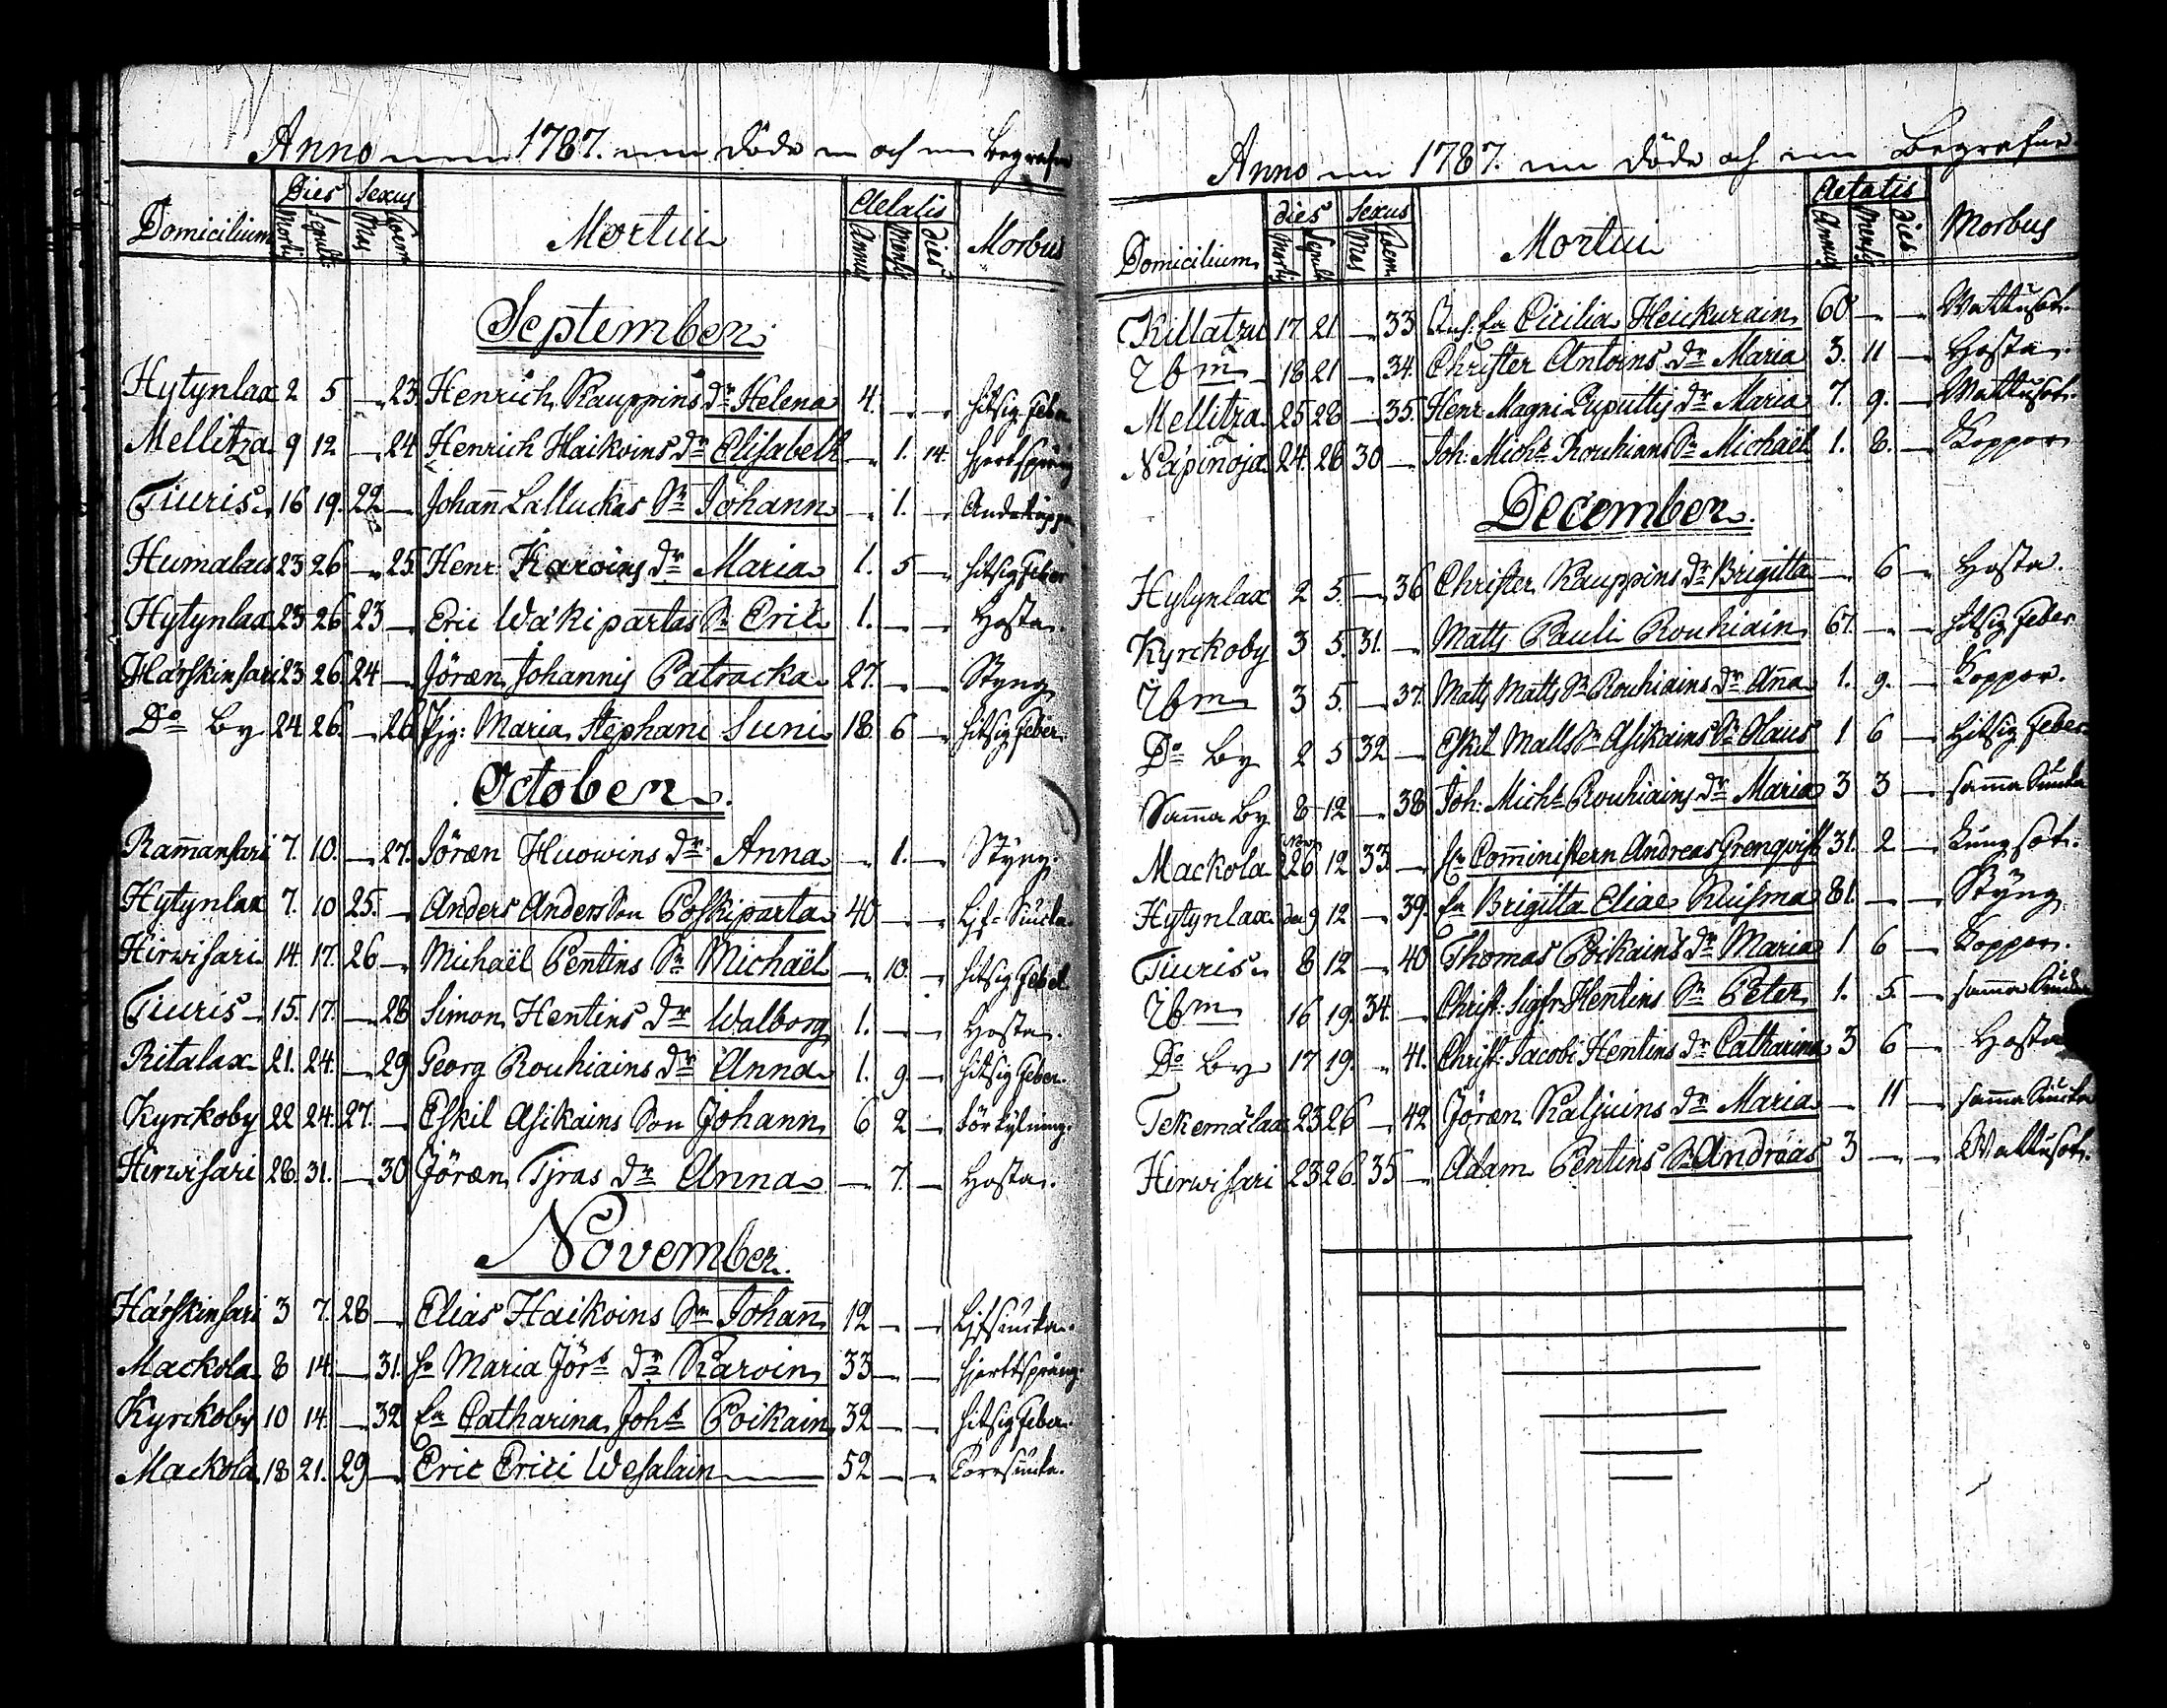 Anno 1787. Döde och Begrafne
Domicilium Dies Sexus Mortui Aetatis Morbus
Mortis Sepult: Mas Foem: Annus Mensis dies
September.
Hytynlax 2 5 — 23. Henrich Kauppins dr Helena 4. — — hitsig Feber
Mellitza 9 12 — 24 Henrich Haikoins dr Elisabeth — 1. 14. hjertsprång
Tiuris 16 19. 22 — Johan Lalluckas Sn Johann — 1. — Andtäppa
Humalais 23 26 — 25. Henr: Karoins dr Maria 1. 5 — hitsig Feber
Hytynlax 23 26 23 — Eric Wäkipartas Sn Eric 1. — — Hosta.
Härskinsari 23 26. 24 — Jöran Johannis Patracka 27. — — Styng
Do By 24 26. — 26 Pig: Maria Stephani Suni 18. 6 — hitsig Feber.
October.
Ramansari 7. 10. — 27. Jöran Huowins dr Anna — 1. — Styng.
Hytynlax 7. 10 25. — Anders Anders Son Poskiparta 40 — — Lyf-Siucka.
Hirwisari 14. 17. 26 — Michaël Pentins Sn Michaël — 10. — hitsig Feber
Tiuris 15. 17. — 28 Simon Hentins dr Walborg 1. — — Hosta.
Ritalax 21. 24. — 29 Georg Rouhiains dr Anna 1. 9. — hitsig Feber.
Kyrckoby 22 24. 27. — Eskil Asikains Son Johann 6 2 — Förkylning.
Hirwisari 28. 31. — 30 Jöran Tjras dr Anna — 7. — Hosta.
November.
Härskinsari 3 7. 28 — Elias Haikoins Sn Johan 12 — — Lyfsiucka.
Mackola 8 14. — 31. h. Maria Jörs dr Karoin 33 — — hjerttsprång.
Kyrckoby 10 14. — 32 En Catharina Johs Poikain 32 — — hitsig Feber.
Mackola 18 21. 29 — Eric Erici Wesalain 52 — — Torrsiucka.
Anno 1787. Döde och Begrafne
Domicilium dies Sexus Mortui Aetatis Morbus
Mortis Sepult Mas Foem Annus Mensis dies
Killatzu 17 21 — 33 Enk. En Cicilia Heickurain 60 — — Wattusot.
Ibm 18 21 — 34. Christer Antoins dr Maria 3. 11 — Hosta.
Mellitza 25 28 — 35. Henr: Magni Puputtis dr Maria 7. 9. — Wattusot.
Näpinoja 24. 28 30 — Joh: Michs Rouhians Sn Michaël 1. 8. — Koppor
December.
Hytynlax 2 5. — 36 Christer Kauppins dr Brigitta — 6 — Hosta.
Kyrckoby 3 5. 31. — Matts Pauli Rouhiain 67. — — hitsig Feber
Ibm 3 5. — 37. Matts Matts Sn Rouhiains dr Ana 1. 9. — Koppor.
Do By 2 5 32 — Eskil Matts Sn Asikains Sn Olaus 1 6 — Hitsig Feber
Sama By 8 12 — 38 Joh: Michs Rouhiains dr Maria 3 3 — sama Siucka
Mackola Nov 26 12 33 — Hr Comministern Andreas Grenqvist 31. 2 — Lungsot.
Hytynlax den 9 12 — 39. En Brigitta Eliae Ruisma 81. — — Styng
Tiuris 8 12 — 40 Thomas Poikains dr Maria 1 6 — Koppor.
Ibm 16 19. 34. — Christ: Sigfr: Hentins Sn Peter 1. 5. — sama Siucka
Do By 17 19. — 41. Christ: Jacobi Hentins dr Catharina 3 6 — Hosta
Tekemälax 23 26 — 42 Jöran Kaljuins dr Maria — 11 — sama Siucka
Hirwisari 23 26. 35 — Adam Pentins Sn Andreas 3 — — Wattusot.